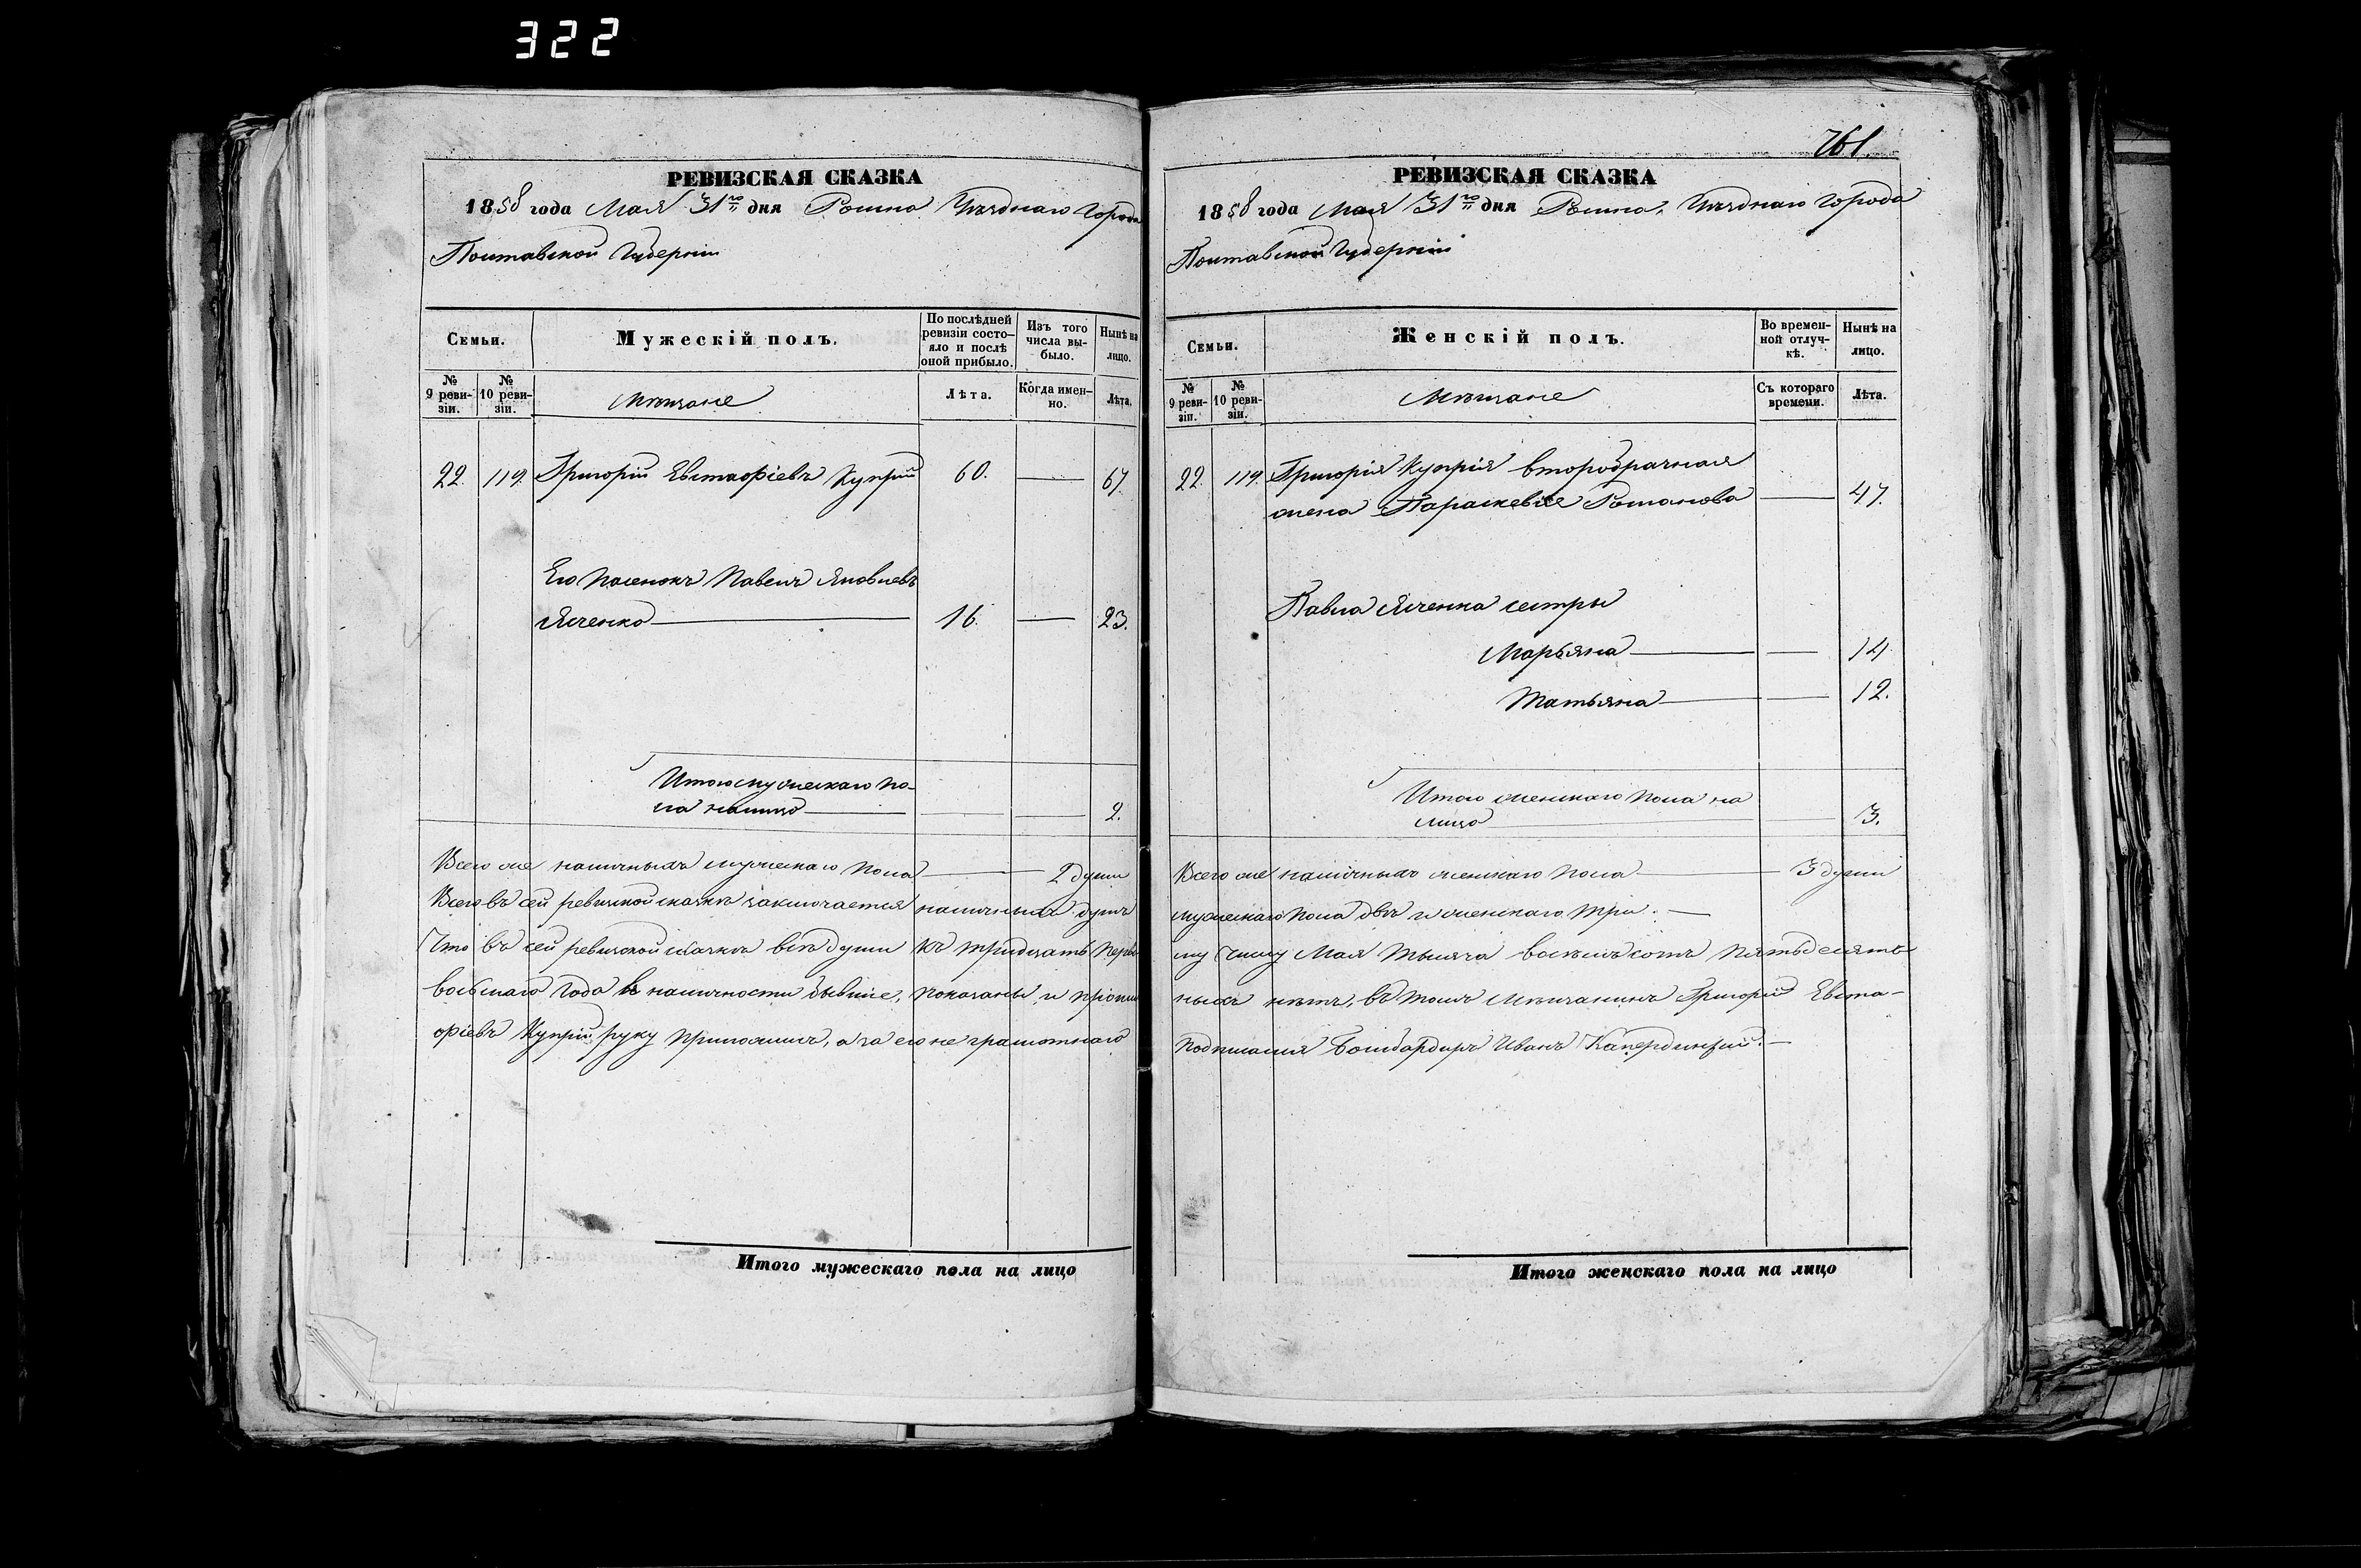 322
РЕВИЗСКАЯ СКАЗКА
1858 года Мая 31го дня Ромна Уѣзднаго Города
Полтавской Губерніи
Семьи.
Мужескій полъ.
По послѣдней ревизіи состояло и послѣ оной прибыло.
Изъ того числа выбыло.
Нынѣ на лицо.
№ 9 ревизіи.
№ 10 ревизіи.
Мѣщане
Лѣта.
Когда именно.
Лѣта.
22. 119. Григорій Евстафіевъ Купрій 60. — 67.
Его пасенокъ Павелъ Яковлевъ
Яченко — 16. — 23.
Итого мужескаго по-
ла налицо — — — 2.
Всего же наличныхъ мужескаго пола — 2 души
Всего въ сей ревизской сказкѣ заключается наличныхъ душъ
Что въ сей ревизской сказкѣ всѣ души къ тридцать перво
восьмаго года в наличности бывшіе, показаны, и
фіевъ Купрій руку приложилъ, а за его не грамотнаго
Итого мужескаго пола на лицо
761.
РЕВИЗСКАЯ СКАЗКА
1858 года Мая 31го дня Ромна, Уѣзднаго Города
Полтавской Губерніи
Семьи.
Женскій полъ.
Во временной отлучкѣ.
Нынѣ на лицо.
№ 9 ревизіи.
№ 10 ревизіи.
Мѣщане
Съ котораго времени.
Лѣта.
22. 119. Григорія Купрія второбрачная
жена Параскевіе Романова — 47.
Павла Яченка сестры
Марьяна — — 14.
Татьяна — — 12.
Итого женскаго пола на
лицо — — 3.
Всего же наличныхъ женскаго пола — 3 души
мужескаго пола двѣ и женскаго три. —
му числу Мая тысяча восемъсотъ пятьдесятъ
ныхъ нѣтъ, въ томъ Мѣщанинъ Григорій Евста-
подписался Бомбардиръ Иванъ —
Итого женскаго пола на лицо